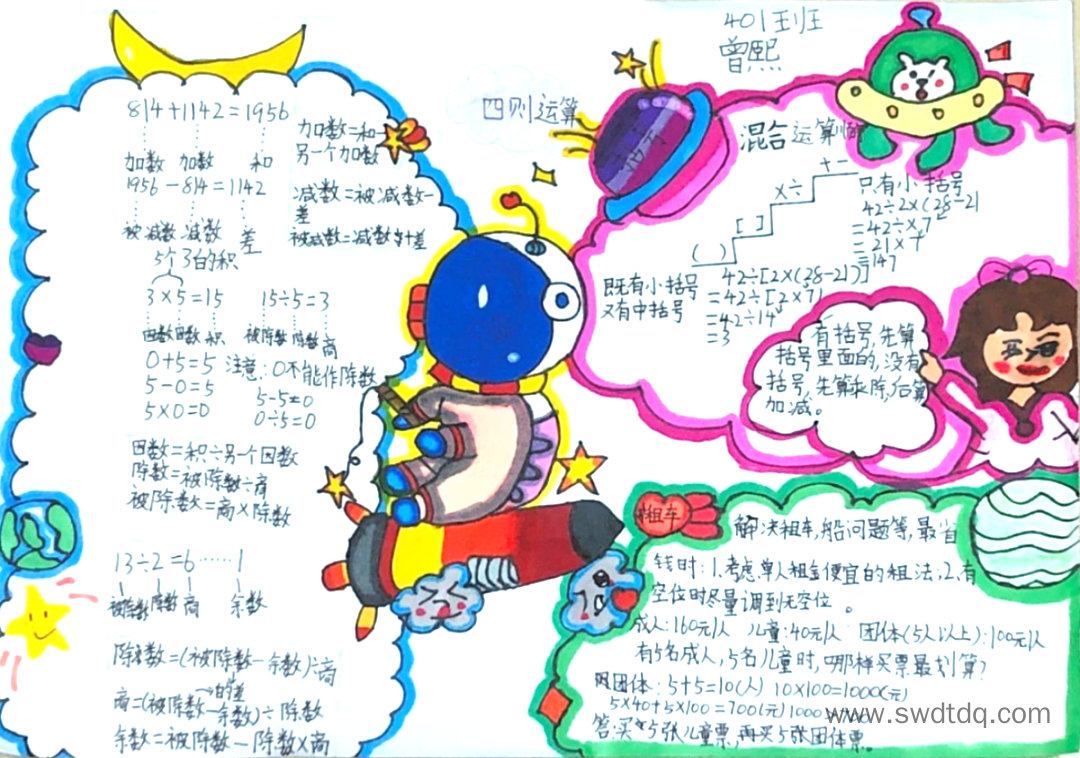 401班
曾熙
四则运算
814+1142=1956
加数 加数 和
加数=和-
另一个加数
1956-814=1142
被减数 减数 差
减数=被减数-
差
被减数=减数+差
5个3的积
3×5=15 15÷5=3
因数 因数 积 被除数 除数 商
0+5=5 注意:0不能作除数
5-0=5 5-5=0
5×0=0 0÷5=0
因数=积÷另一个因数
除数=被除数÷商
被除数=商×除数
13÷2=6……1
被除数 除数 商 余数
除数=(被除数-余数)÷商
的差
商=(被除数-余数)÷除数
余数=被除数-除数×商
混合运算
+-
×÷
[ ]
( )
只有小括号
42÷2×(28-21
=42÷×7
=21×7
=147
既有小括号
又有中括号
42÷[2×(28-21)]
=42÷[2×7]
=42÷14
=3
有括号,先算
括号里面的,没有
括号,先算乘除,后算
加减。
租车
解决租车,船问题等,最省
钱时:1.考虑单人租金便宜的租法;2.有
空位时尽量调到无空位。
成人:160元/人 儿童:40元/人 团体(5人以上):100元/人
有5名成人,5名儿童时,哪样买票最划算?
团体:5+5=10(人) 10×100=1000(元)
5×40+5×100=700(元) 1000
答:买5张儿童票,再买5张团体票。
www.swdtdq.com